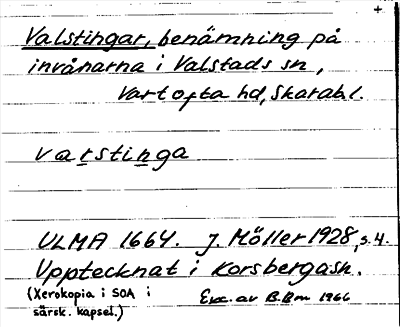 +
Valstingar, benämning på
invånarna i Valstads sn,
Vartofta hd, Skarabl.
varstinga
ULMA 1664. J. Möller 1928, s. 4.
Upptecknat i Korsbergash.
(Xerokopia i SOA i
särsk. kapsel.) Exc. av B.Bm 1966